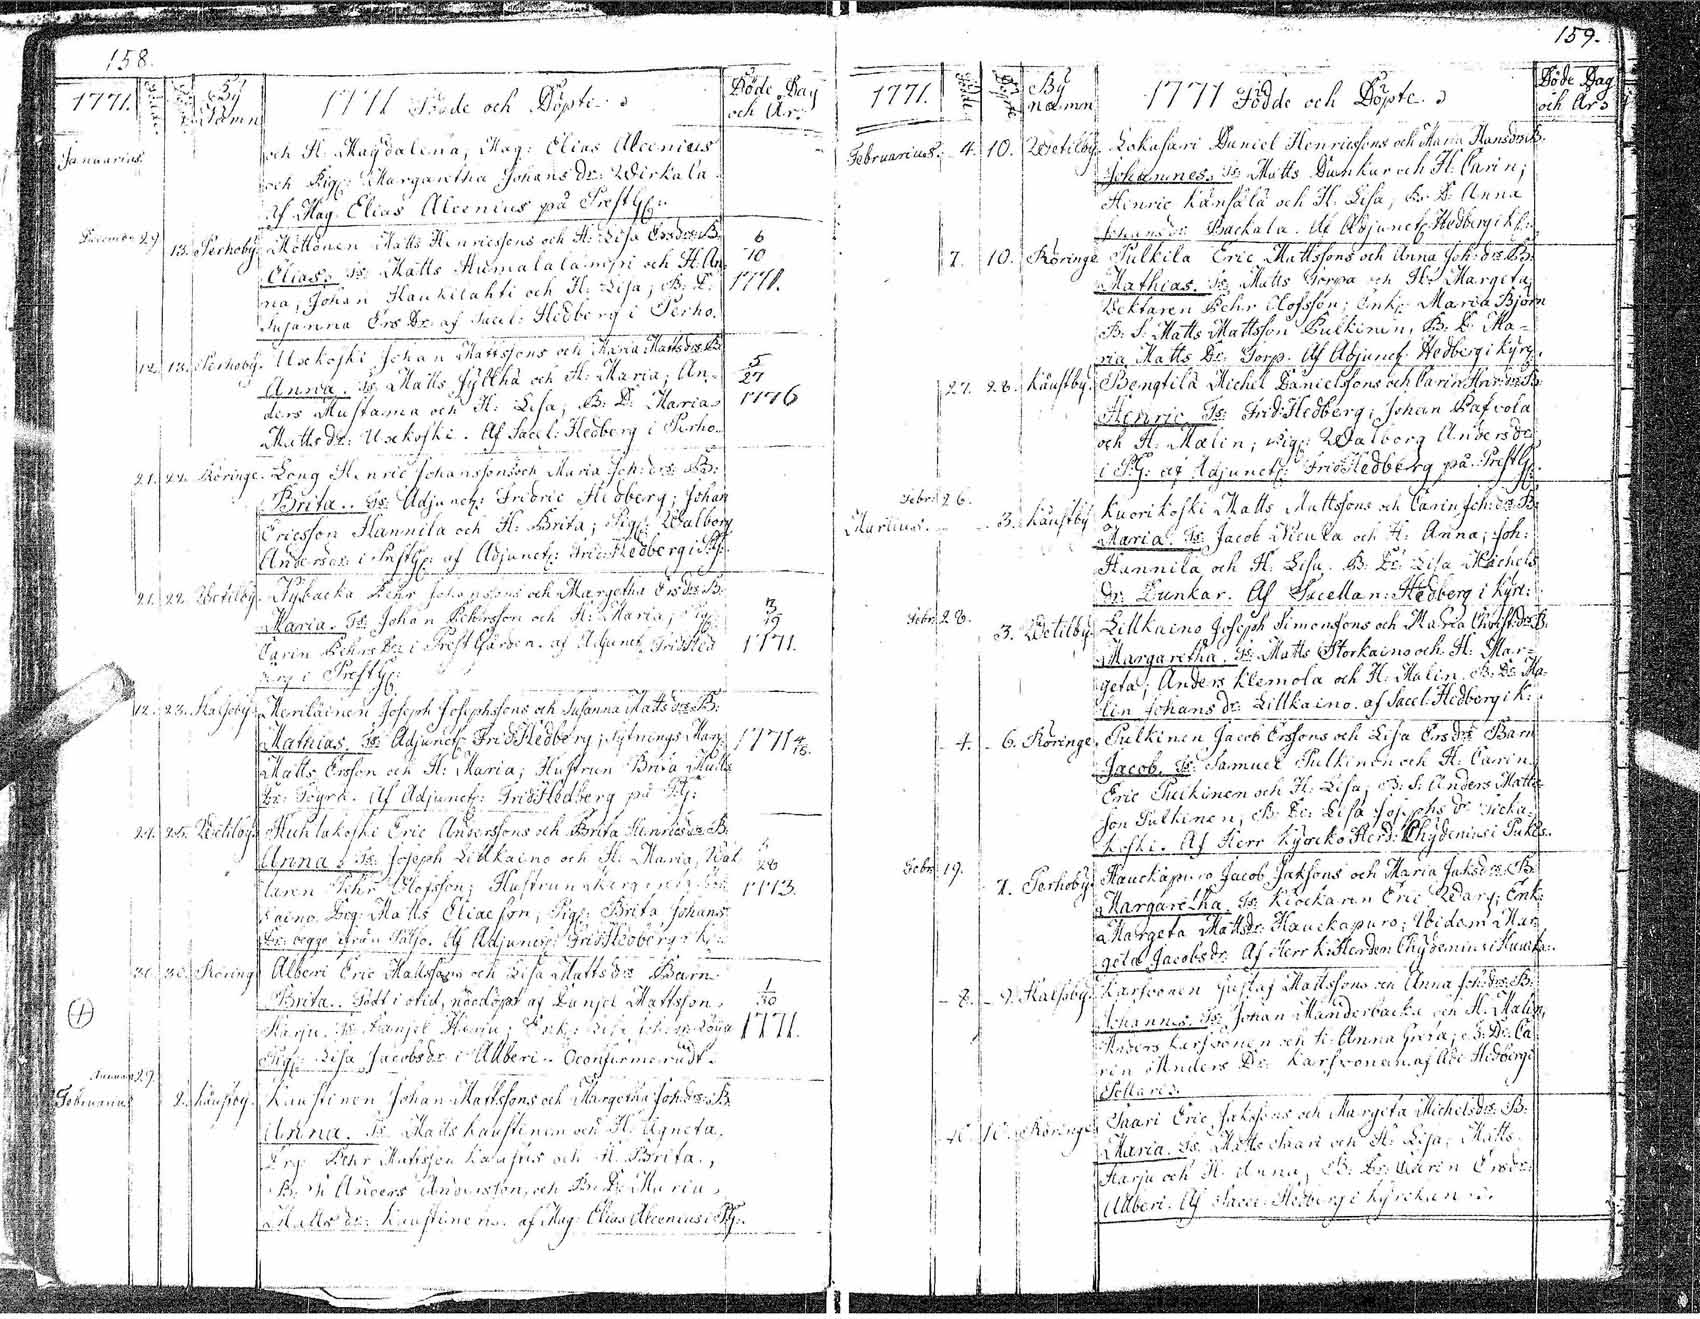 158.
1771. Födde Döpte By Namn 1771 Födde och Döpte. Döde Dag och År.
Januarius. och H. Magdalena; Mag: Elias Alcenius
och Pig: Margaretha Johans Dr: Wirkala.
Af Mag. Elias Alcenius på PrestG:
December 29. 13. Perhoby. Möttönen Matts Henricssons och H: Lisa Ersdrs B. 6
Elias. Ts: Matts Humalalampi och H. An- 10
na; Johan Haukilahti och H: Lisa; B. D: 1771.
Susanna Ers Dr: af Sacel: Hedberg i Perho.
12. 13. Perhoby. Usekoski Johan Mattssons och Maria Mattsdrs B. 5
Anna. Ts: Matts Jyllhä och H: Maria; An- 27
ders Mustama och H: Lisa; B: D: Maria 1776
Matts dr: Usekoski. Af Sacel: Hedberg i Perho.
21. 22. Röringe. Long Henric Johanssons och Maria Joh: drs B:
Brita. Ts: Adjunct: Fridric Hedberg; Johan
Ericsson Hannila och H: Brita; Pig: Walborg
Anders dr i PrestG: af Adjunct: Fric: Hedberg i PG.
21. 22. Wetilby. Nybacka Pehr Johanssons och Margetha Ersdrs B.
Maria. Ts: Johan Pehrsson och H: Maria; Pig: 3
Carin Pehrs Dr: i PrestGården. af Adjunct: Frid: Hed 19
berg i PrestG: 1771.
12. 23. Halsoby. Meriläinen Joseph Josephssons och Susanna Matts drs B:
Mathias. Ts: Adjunct: Frid: Hedberg; Sytnings Man 1771 4
Matts Ersson och H: Maria; Hustrun Brita Matts 18.
Dr: Töyrä. Af Adjunct: Frid: Hedberg på PG:
24. 25. Wetilby. Huhtakoski Eric Anderssons och Brita Henricsdrs B:
Anna. Ts: Joseph Lillkaino och H: Maria,
taren Pehr Olofsson; Hustrun 28
kaino. Drg: Matts Eliaeson; Pig: Brita Johans 1773.
Dr: begge ifrån Af Adjunct: Frid: Hedberg i K:
30. 30. Röring Alberi Eric Mattssons och Lisa Matts drs Barn
Brita. Född i otid, nöddöpt af Danjel Mattsson 1
Harju. Ts: Danjel Harju; 30
Pig: Lisa Jacobsdr i Alberi. Oconfirmeradt. 1771.
Januari 29.
Februarius 2. Käustby. Kaustinen Johan Mattssons och Margetha Joh. drs B.
Anna. Ts: Matts Kaustinen och H: Agneta,
Drg: Pehr Mattsson Kaustis och H: Brita.,
B. S: Anders Andersson, och B: D: Maria
Matts dr: Kaustinen. af Mag: Elias Alcenius i PG:
159.
1771. Födde Döpte By namn 1771 Födde och Döpte. Döde Dag och År
Februarius. 4. 10. Wetilby. Lokasari Daniel Henricssons och Maria Hansdrs B.
Johannes. Ts: Matts Dunkar och H: Carin;
Hinric Känsälä och H: Lisa; B: D: Anna
Johans dr: Backala. Af Adjunct: Hedberg i K:
7. 10. Röringe Pulkila Eric Mattssons och Anna Joh: drs B:
Mathias. Ts: Matts Torpa och H: Margeta,
Wäktaren Pehr Olofsson; Enk: Maria Björn
B: S: Matts Mattsson Pulkinen, B: D: Ma-
ria Matts Dr: Torp. Af Adjunct: Hedberg i Kyrk.
27. 28. Käustby. Bengtilä Michel Danielssons och Carin Hnr: drs B:
Henric. Ts: Frid: Hedberg; Johan Pafvola
och H: Malin; Pig: Walborg Andersdr
i PG: af Adjunct: Frid: Hedberg på PrestG:
Febr: 26.
Martius. 3. Käustby Kuorikoski Matts Mattssons och Carin Joh: drs B:
Maria. Ts: Jacob Wirkala och H: Anna; Joh:
Hannila och H: Lisa. B: D: Lisa Michels
dr: Dunkar. Af Sacellan: Hedberg i Kyrk:
Febr: 28.
3. Wetilby. Lillkaino Joseph Simonssons och Maria Christ: drs B.
Margaretha. Ts: Matts Storkaino och H: Mar-
geta; Anders Klemola och H: Malin. B: D: Ma-
lin Johans dr: Lillkaino. af Sacel: Hedberg i K:
4. 6. Röringe. Pulkinen Jacob Erssons och Lisa Ersdrs Barn
Jacob. Ts: Samuel Pulkinen och H: Carin.
Eric Pulkinen och H: Lisa; B: S: Anders Matts-
son Pulkinen, B: D: Lisa Josephs dr Ticka-
koski. Af Herr Kyrcko Herd: Chydenius i
Febr: 19.
7. Perhoby. Hauckapuro Jacob Jakssons och Maria Jaks drs B.
Margaretha. Ts: Klockaren Eric Warg; Enk:
Margeta Matts dr: Hauckapuro; Widem Mar-
geta Jacobsdr. Af Herr K: Herden Chydenius i
8. 9. Halsoby. Karfvonen Gustaf Mattssons och Anna Joh: drs B:
Johannes. Ts: Johan Manderbacka och H: Malin,
Anders Karfvonen och H: Anna Greta; B: D: Ca-
rin Anders Dr: Karfvonen. af Adj: Hedberg i
10. 10. Röringe. Saari Eric Jakssons och Margeta Michelsdrs B:
Maria. Ts: Matts Saari och H: Lisa; Matts
Harju och H: Anna, B: D: Carin Ersdr:
Alberi. Af Sacel: Hedberg i Kyrckan.